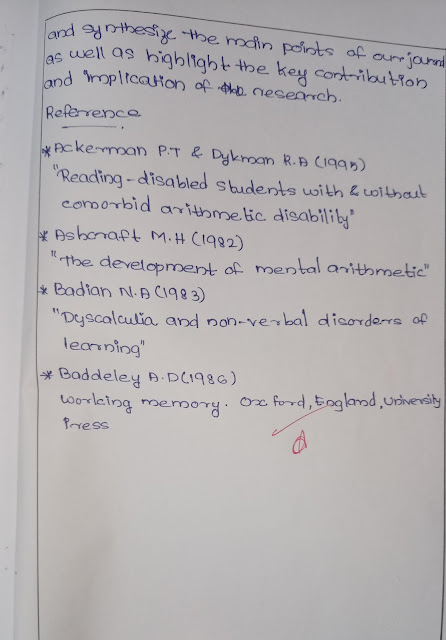 and synthesize the main points of our journal
as well as highlight the key contribution
and implication of the research.
Reference
* Ackerman P.T & Dykman R.A (1995)
"Reading-disabled students with & without
comorbid arithmetic disability"
* Ashcraft M.H (1982)
"the development of mental arithmetic"
* Badian N.A (1983)
"Dyscalculia and non-verbal disorders of
learning"
* Baddeley A.D (1986)
working memory. Oxford, England, University
Press